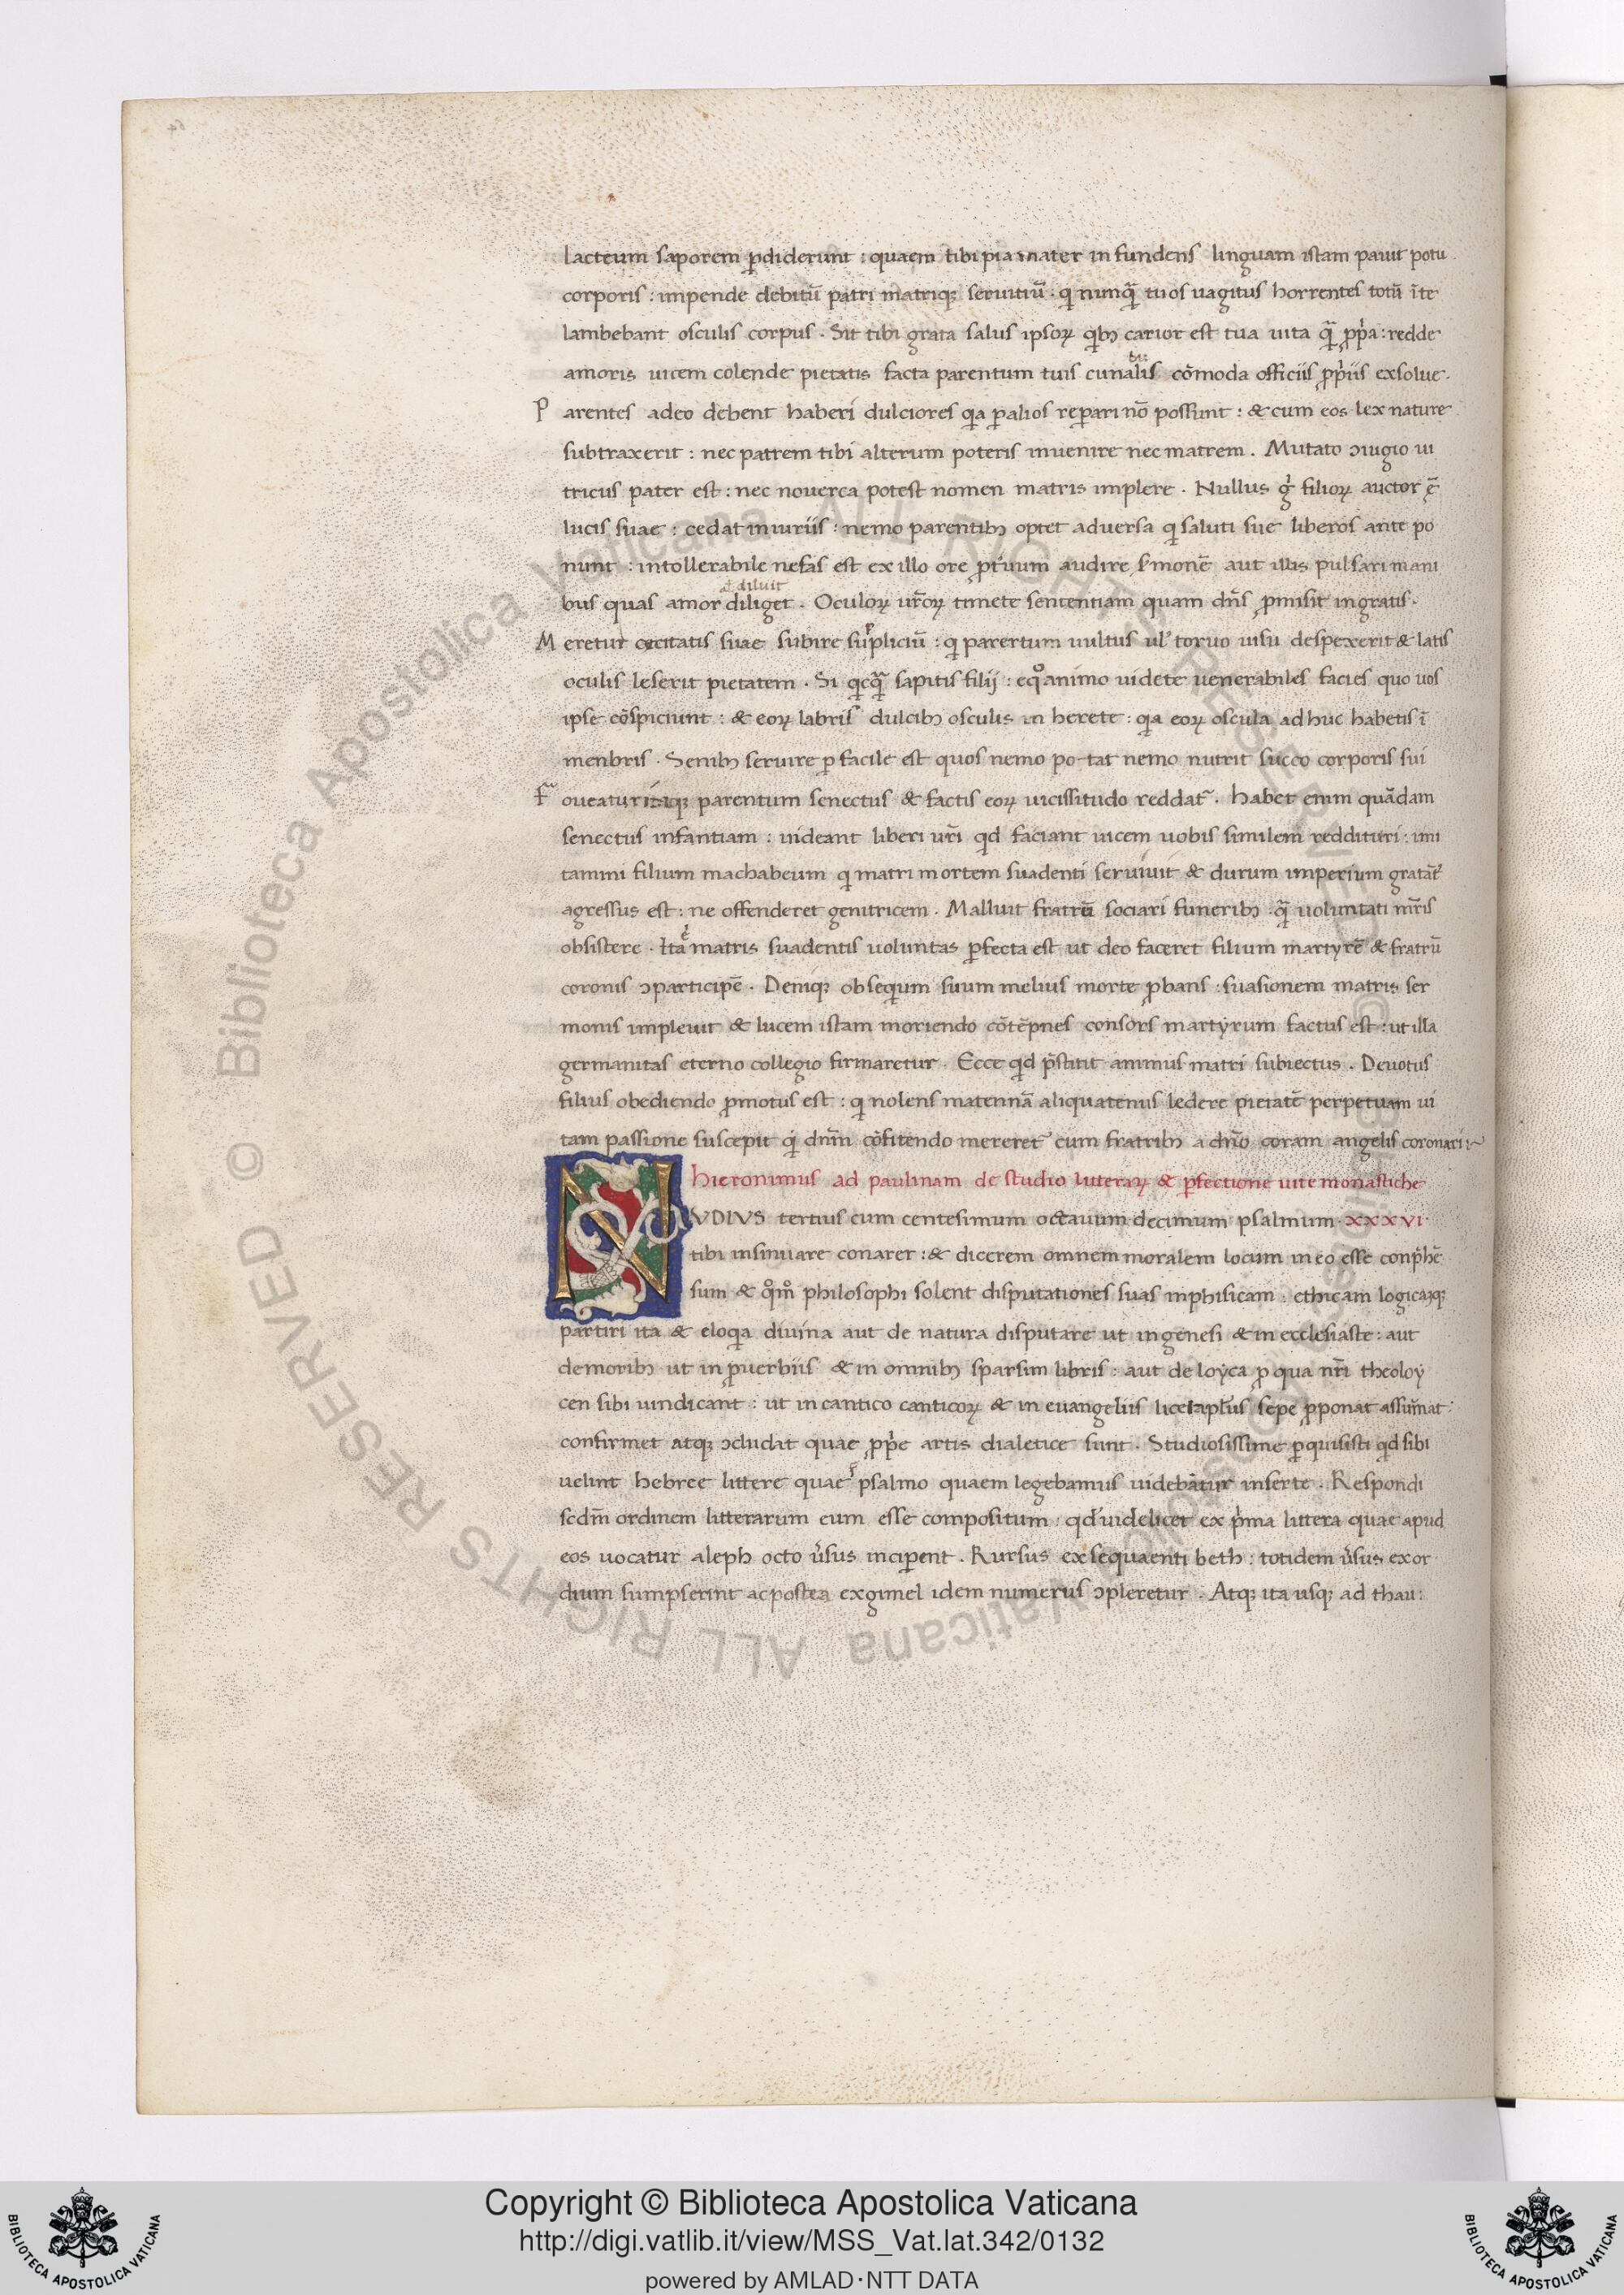 lacteum saporem ꝑdiderunt : quaem tibi pia mater in fundens linguam istam pauit potu
corporis : impende debitū patri matriqꝫ seruitiū · qi nunqᷓ tuos uagitus horrentes totū īte
lambebant osculis corpus . Sit tibi grata salus ipsoꝝ qibꝫ carior est tua uita qᷓ ꝓpͥa : redde
amoris uicem colende pietatis facta parentum tuis cunalis cōmoda officiis ꝓpͥiis exsolue .
P arentes adeo debent haberi dulciores qia ꝑ alios reꝑari nō possunt : & cum eos lex nature
subtraxerit : nec patrem tibi alterum poteris inuenire nec matrem . Mutato ɔiugio ui
tricus pater est : nec nouerca potest nomen matris implere . Nullus gͥ filioꝝ auctor ē
lucis suae : cedat iniuriis : nemo parentibꝫ optet aduersa qi saluti sue liberos ante po
nunt : intollerabile nefas est ex illo ore ꝓtͥuum audire s̾monē aut illis pulsari mani
bus quas amor diliget . Oculoꝝ ur̄oꝝ timete sententiam quam dn̄s ꝓmisit ingratis .
M eretur cecitatis suae subire supͥpliciū : qi parentum uultus ul᾽ toruo uisu despexerit & latis
oculis leserit pietatem . Si qicqᷓ sapitis filij : eqͦ animo uidete uenerabiles facies quo uos
ipse cōspiciunt : & eoꝝ labris dulcibꝫ osculis in herete : qia eoꝝ oscula ad huc habetis ī
menbris . Senibꝫ seruire ꝑ facile est quos nemo po-tat nemo nutrit succo corporis sui
F oueatur itaqꝫ parentum senectus & factis eoꝝ uicissitudo reddat᷑ . Habet enim quādam
senectus infantiam : uideant liberi ur̄i qid faciant uicem uobis similem reddituri : imi
tamini filium machabeum qi matri mortem suadenti seruiuit & durum imperium gratāt᷑
agressus est : ne offenderet genitricem . Malluit fratrū sociari funeribꝫ · qᷓ uoluntati mr̄is
obsistere . Ita matris suadentis uoluntas ꝑfecta est ut deo faceret filium martyrē & fratrū
coronis ɔparticipē . Deniqꝫ obseqium suum melius morte ꝓbans : suasionem matris ser
monis impleuit & lucem istam moriendo cōtēpnes consors martyrum factus est : ut illa
germanitas eterno collegio firmaretur . Ecce qid p̄stitit animus matri subiectus . Deuotus
filius obediendo ꝓmotus est : qi nolens maternā aliquatenus ledere pietatē perpetuam ui
tam passione suscepit qi dn̄m cōfitendo mereret᷑ cum fratribꝫ a dn̄o coram angelis coronari :~
Hieronimus ad paulinam de studio litteraꝝ & ꝑfectione uite monastiche
NVDIVS tertius cum centesimum octauum decimum psalmum · XXXVI ·
tibi insinuare conarer : & dicerem omnem moralem locum in eo esse conp̄hē
sum & qͦmͦ philosophi solent disputationes suas inphisicam : ethicam logicaqꝫ
partiri ita & eloqia diuina aut de natura disputare ut ingenesi & in ecclesiaste : aut
demoribꝫ ut in ꝓuerbiis & in omnibꝫ sparsim libris : aut de loyca ꝓ qua nr̄i theoloy
cen sibi uindicant : ut in cantico canticoꝝ & in euangeliis sepe ꝓponat assumat ·
confirmet atqꝫ ɔcludat quae ꝓpͥe artis dialetice sunt . Studiosissime ꝑquisisti qid sibi
uelint hebree littere quae psalmo quaem legebamus uidebātur inserte . Respondi
scdm̄ ordinem litterarum eum esse compositum : qd᾽ uidelicet ex pͥma littera quae apud
eos uocatur aleph octo u̾sus inciꝑent . Rursus ex sequaenti beth : totidem u̾sus exor
dium sumpserint ac postea ex gimel idem numerus ɔpleretur . Atqꝫ ita usqꝫ ad thau :
© Biblioteca Apostolica Vaticana ALL RIGHTS RESERVED
Copyright © Biblioteca Apostolica Vaticana
http://digi.vatlib.it/view/MSS_Vat.lat.342/0132
powered by AMLAD·NTT DATA
BIBLIOTECA APOSTOLICA VATICANA
BIBLIOTECA APOSTOLICA VATICANA